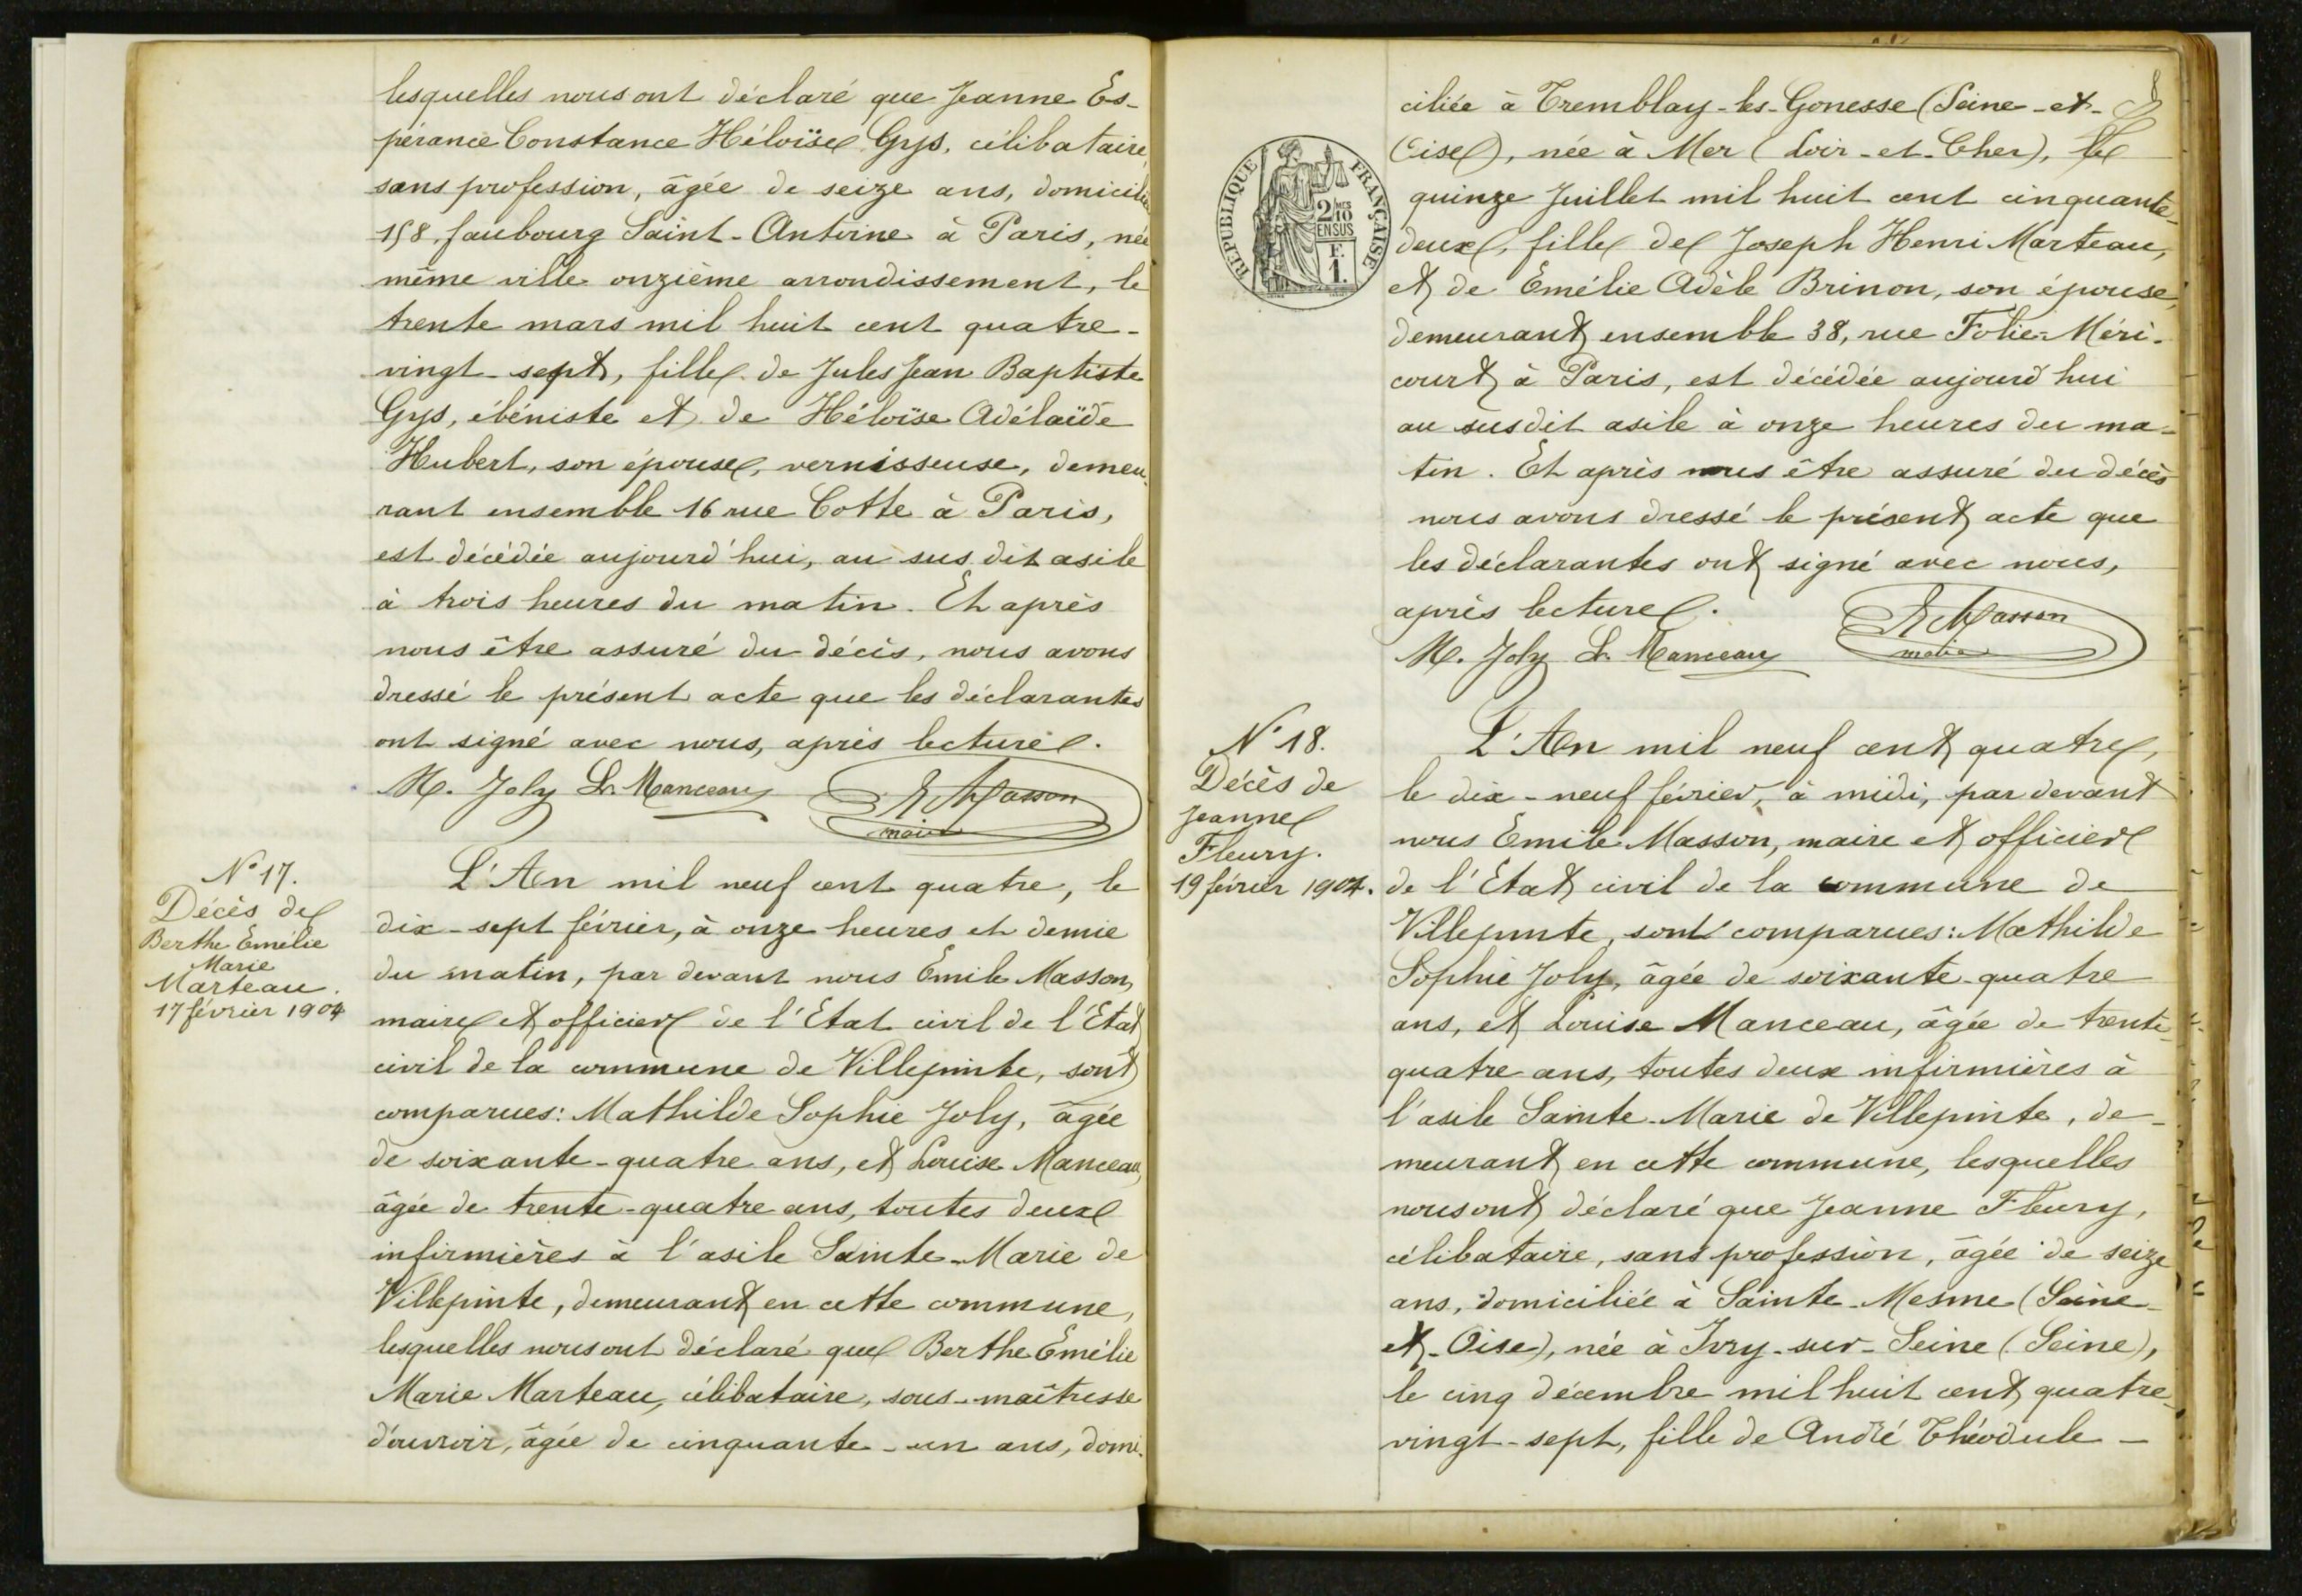 lesquelles nous ont déclaré que Jeanne Es-
pérance Constance Héloïse Gys, célibataire,
sans profession, âgée de seize ans, domiciliée
158, faubourg Saint-Antoine à Paris, née
même ville onzième arrondissement, le
trente mars mil huit cent quatre-
vingt-sept, fille de Jules Jean Baptiste
Gys, ébéniste et de Héloïse Adélaïde
Hubert, son épouse, vernisseuse, demeu-
rant ensemble 16 rue Cotte à Paris,
est décédée aujourd'hui, au sus dit asile
à trois heures du matin. Et après
nous être assuré du décès, nous avons
dressé le présent acte que les déclarantes
ont signé avec nous, après lecture.
M. Joly L. Manceau E Masson
maire
N° 17.
Décès de
Berthe Emélie
Marie
Marteau.
17 février 1904
L'An mil neuf cent quatre, le
dix-sept février, à onze heures et demie
du matin, par devant nous Emile Masson,
maire et officier de l'Etat civil de l'Etat
civil de la commune de Villepinte, sont
comparues: Mathilde Sophie Joly, âgée
de soixante-quatre ans, et Louise Manceau,
âgée de trente-quatre ans, toutes deux
infirmières à l'asile Sainte-Marie de
Villepinte, demeurant en cette commune,
lesquelles nous ont déclaré que Berthe Emélie
Marie Marteau, célibataire, sous-maîtresse
d'ouvroir, âgée de cinquante-un ans, domi-
ciliée à Tremblay-les-Gonesse (Seine-et-
Oise), née à Mer (Loir-et-Cher), le
quinze Juillet mil huit cent cinquante-
deux, fille de Joseph Henri Marteau,
et de Emélie Adèle Brinon, son épouse,
demeurant ensemble 38, rue Folie-Méri-
court à Paris, est décédée aujourd'hui
au susdit asile à onze heures du ma-
tin. Et après nous être assuré du décès
nous avons dressé le présent acte que
les déclarantes ont signé avec nous,
après lecture.
M. Joly L. Manceau E Masson
maire
RÉPUBLIQUE FRANÇAISE
2/10 EN SUS
F. 1.
N° 18.
Décès de
Jeanne
Fleury.
19 février 1904.
L'An mil neuf cent quatre,
le dix-neuf février, à midi, par devant
nous Emile Masson, maire et officier
de l'Etat civil de la commune de
Villepinte, sont comparues: Mathilde
Sophie Joly, âgée de soixante-quatre
ans, et Louise Manceau, âgée de trente-
quatre ans, toutes deux infirmières à
l'asile Sainte-Marie de Villepinte, de-
meurant en cette commune, lesquelles
nous ont déclaré que Jeanne Fleury,
célibataire, sans profession, âgée de seize
ans, domiciliée à Sainte-Mesme (Seine-
et-Oise), née à Ivry-sur-Seine (Seine),
le cinq décembre mil huit cent quatre-
vingt-sept, fille de André Théodule -